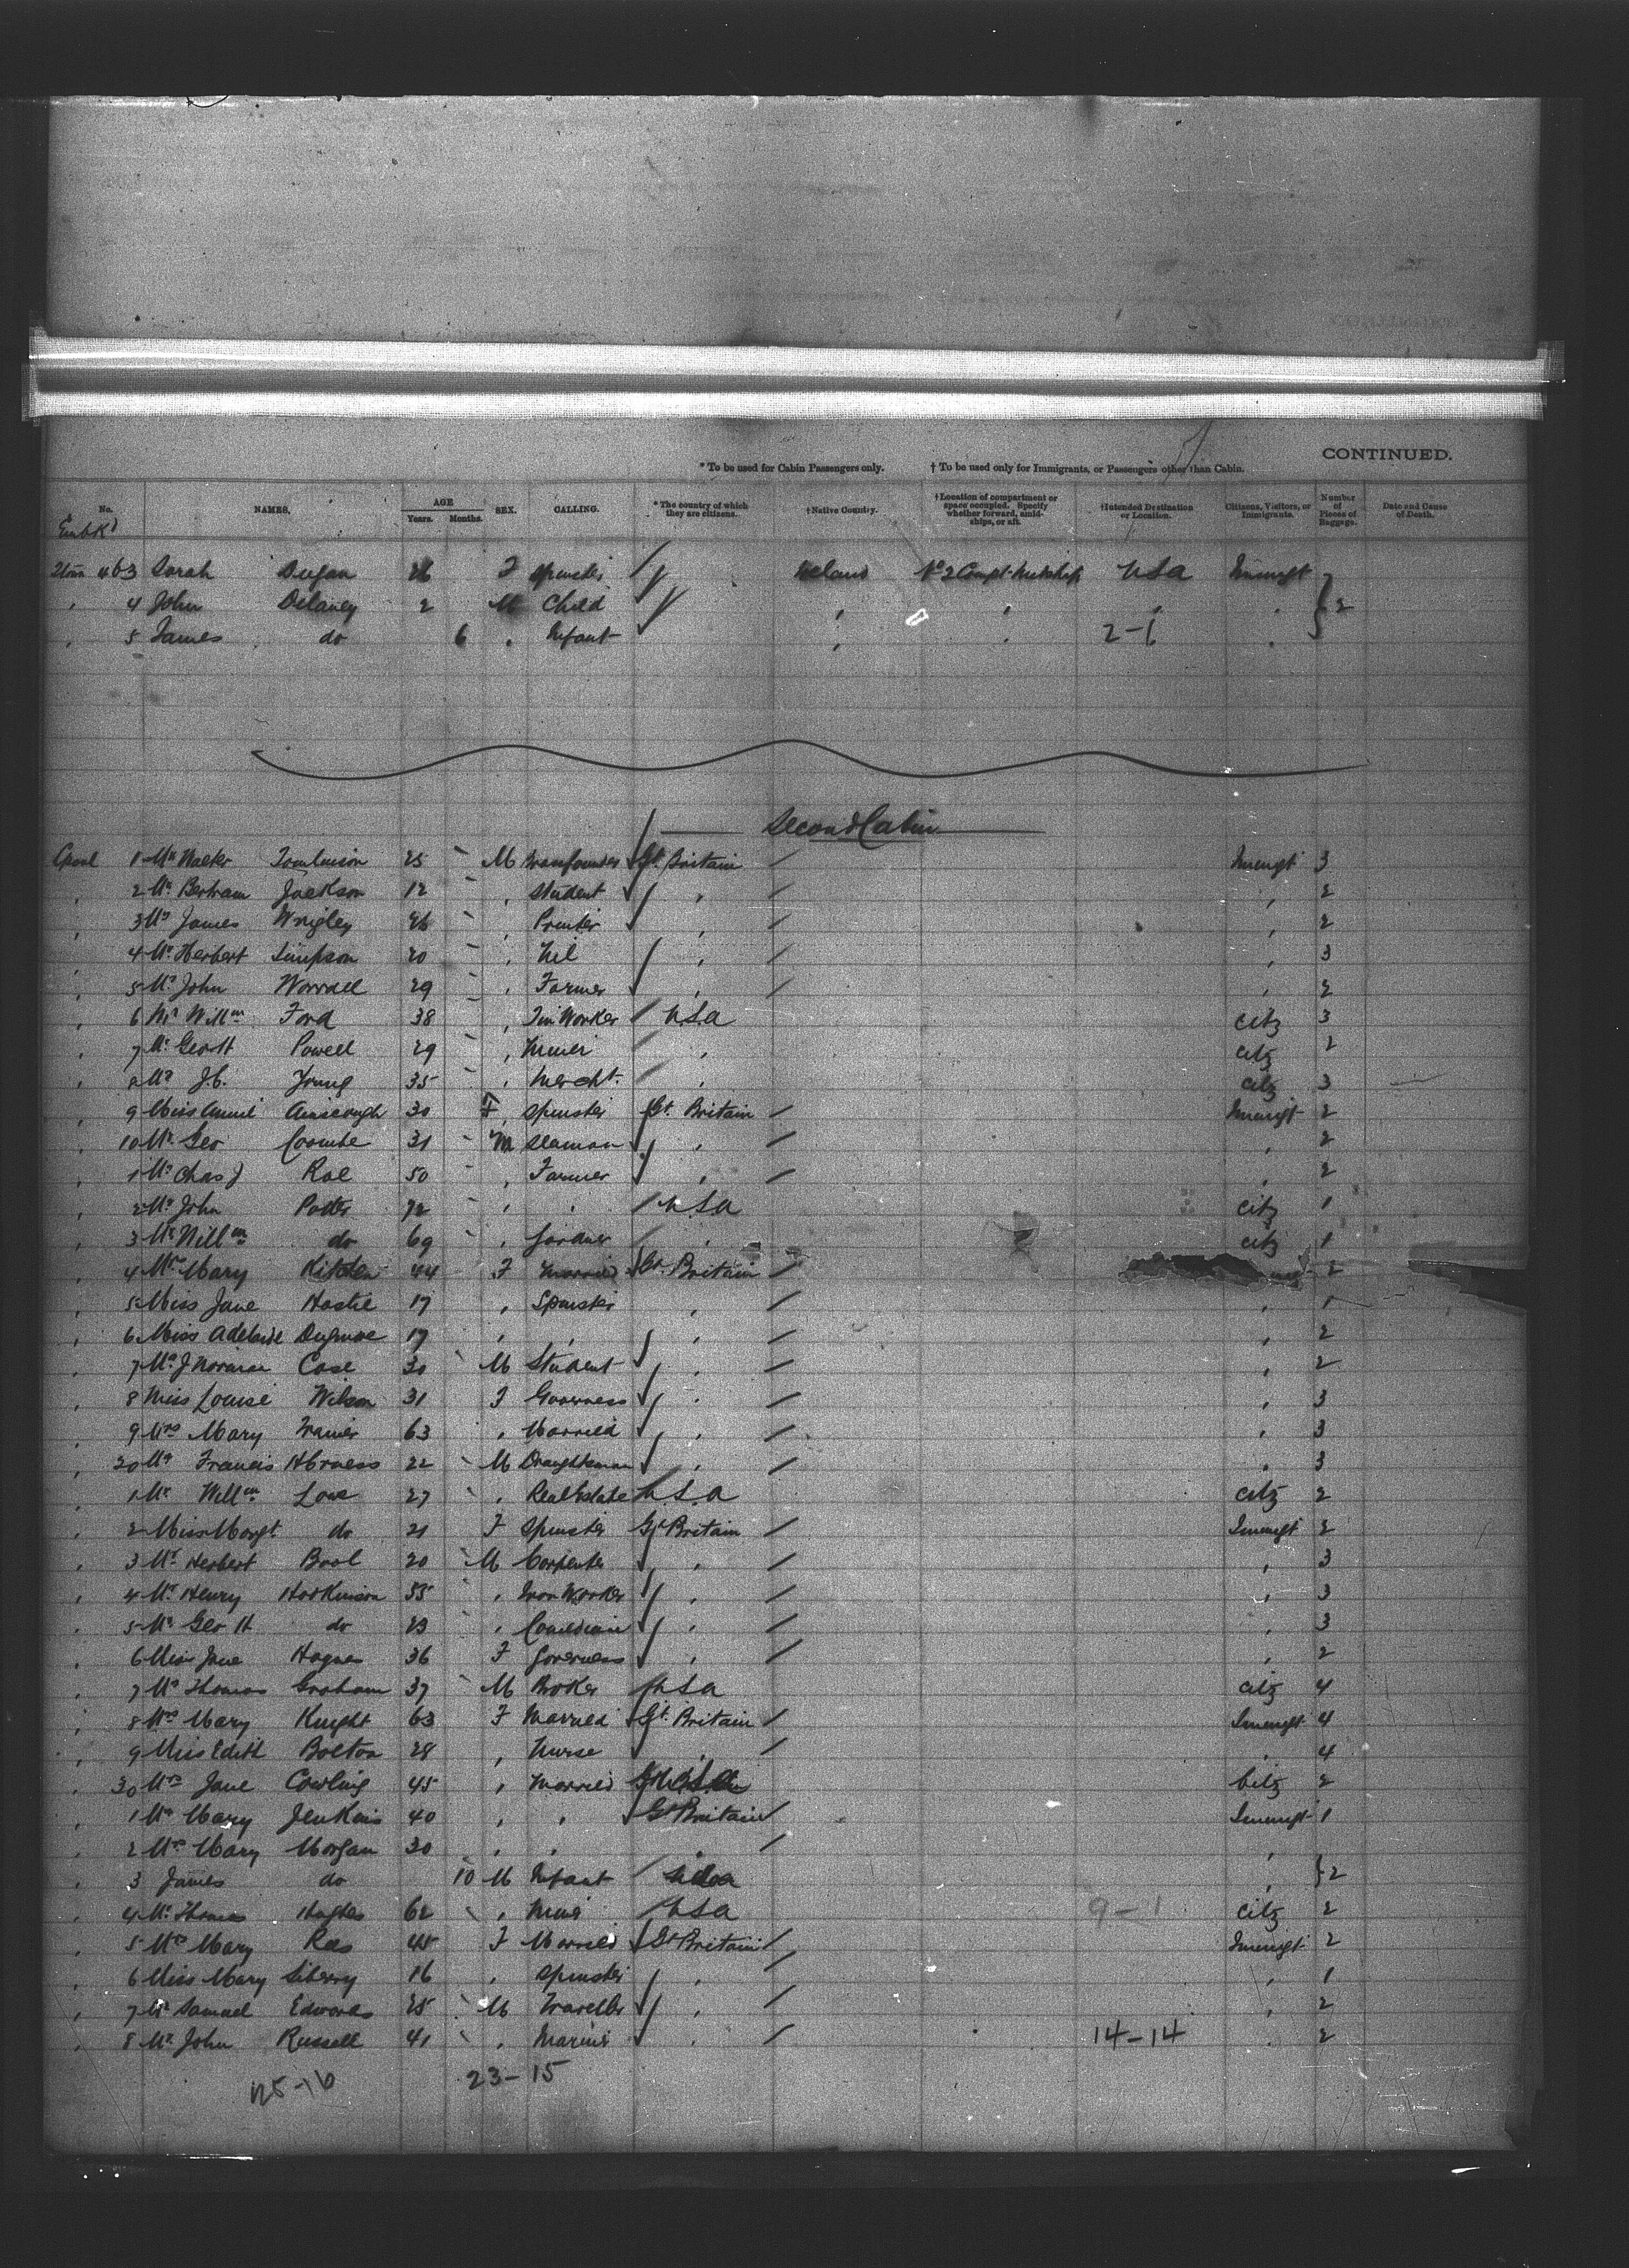 CONTINUED.
* To be used for Cabin Passengers only. † To be used only for Immigrants, or Passengers other than Cabin.
No. NAMES. AGE Years. Months. SEX. CALLING. * The country of which they are citizens. † Native Country. † Location of compartment or space occupied. Specify whether forward, amidships, or aft. † Intended Destination or Location. Citizens, Visitors, or Immigrants. Number of Pieces of Baggage. Date and Cause of Death.
Embkd
463 Sarah F Spinster Ireland No 2 Compt. USA
4 John Delaney 2 M Child 2
5 James do 6 Infant
2-1
Second Cabin
1 Mr Walter Tomlinson 25 M Gt. Britain 3
2 Mr Bertram Jackson 12 Student 2
3 Mr James Wrigley 26 Printer 2
4 Mr Herbert Simpson 20 Nil 3
5 Mr John Worrall 29 Farmer 2
6 Mr Willm Ford 38 Tin Worker USA Citz 3
7 Mr Geo H Powell 29 Miner Citz 2
8 Mr J.C. Young 35 Mercht. Citz 3
9 Miss Annie Ainscough 30 F Spinster Gt. Britain 2
10 Mr Geo Coombe 31 M Seaman 2
1 Mr Chas J Roe 50 Farmer 2
2 Mr John Potts 72 USA Citz 1
3 Mr Willm do 69 Citz 1
4 Mrs Mary Kitchen 44 F Married Gt. Britain 2
5 Miss Jane Hostie 17 Spinster 1
6 Miss Adelaide 17 2
7 Mr J Norman Case 30 M Student 2
8 Miss Louise Wilson 31 F Governess 3
9 Mrs Mary 63 Married 3
20 Mr Francis 22 M Draughtsman 3
1 Mr Willm Love 27 Real Estate U.S.A Citz 2
2 Miss Margt do 21 F Spinster Gt Britain 2
3 Mr Herbert 20 M Carpenter 3
4 Mr Henry Hoskinson 55 Iron Worker 3
5 Mr Geo H do 23 Comedian 3
6 Miss Jane 36 F Governess 2
7 Mr Thomas Graham 37 M Broker USA Citz 4
8 Mrs Mary Knight 63 F Married Gt. Britain 4
9 Miss Edith Bolton 28 Nurse 4
30 Mrs Jane Cowling 45 Married Citz 2
1 Mrs Mary Jenkins 40 Gt Britain 1
2 Mrs Mary Morgan 30
3 James do 10 M Infant 2
4 Mr Thomas Hughes 62 USA 9-1 Citz 2
5 Mrs Mary Rees 45 F Married Gt Britain 2
6 Miss Mary 16 Spinster 1
7 Mr Samuel Edwards 25 M Traveller 2
8 Mr John Russell 41 14-14 2
23-15